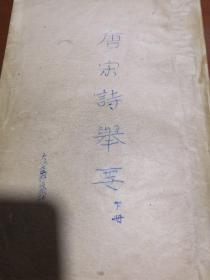 唐宋詩舉要
下冊